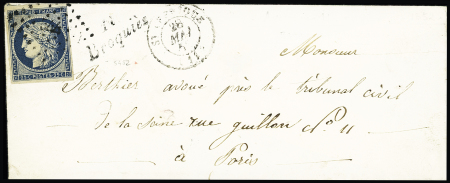 REPUB. FRANC.
25 C. POSTES 25 C.
18
Broquiès
26
MAI
Monsieur
Berthier avoué près le tribunal civil
de la Seine rue guillon N° 11
à Paris